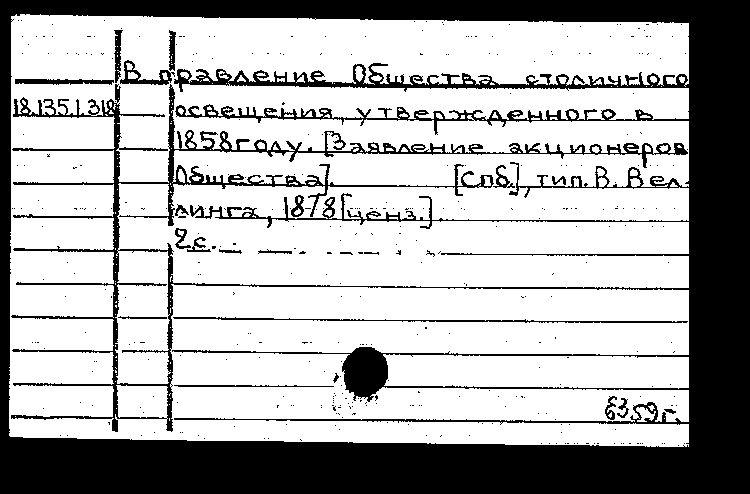 В правление Общества столичного
18.135.1.318 освещения, утвержденного в
1858 году. [Заявление акционеров
Общества]. [Спб.], тип. В. Вел-
линга, 1878 [ценз.].
2 с.
6359г.